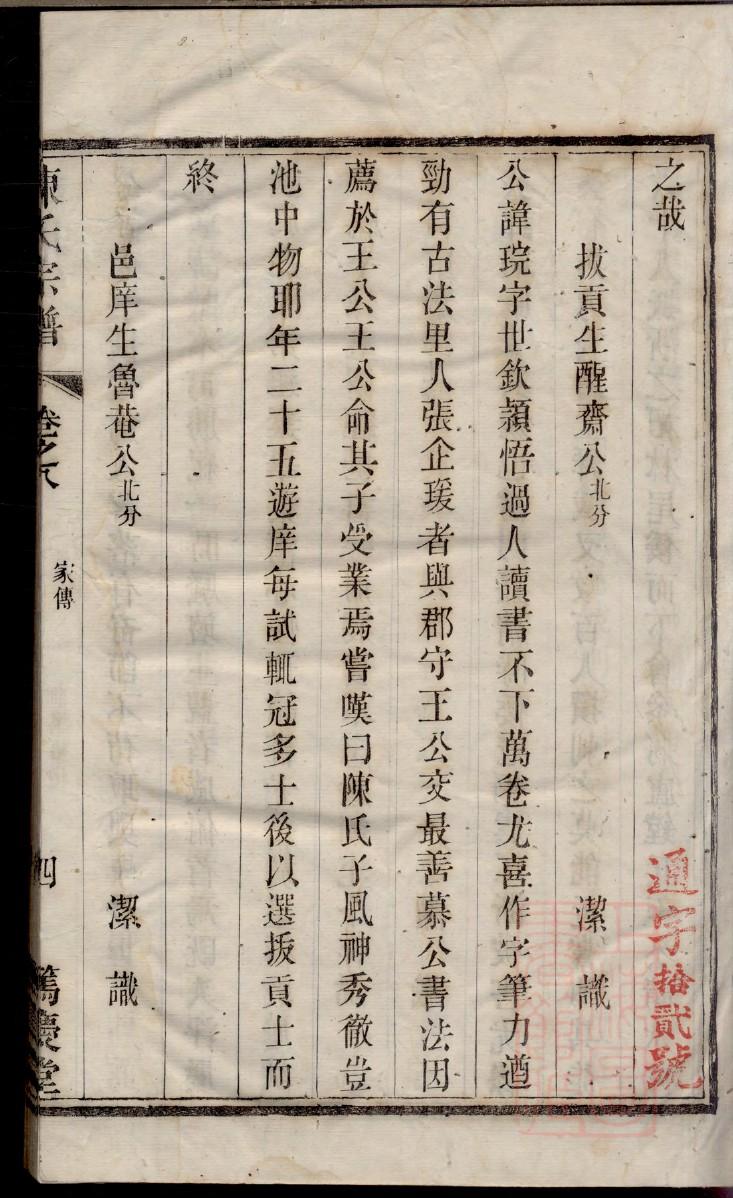 之哉
拔貢生醒齋公北分　潔識
公諱琓字世欽頴悟過人讀書不下萬卷尤喜作字筆力遒
勁有古法里人張企瑗者與郡守王公交最善慕公書法因
薦於王公王公命其子受業焉嘗嘆曰陳氏子風神秀徹豈
池中物耶年二十五遊庠每試輒冠多士後以選拔貢士而
終
邑庠生魯菴公北分　潔識
陳氏宗譜　卷之八　家傳　四　篤慶堂
通字拾貳號